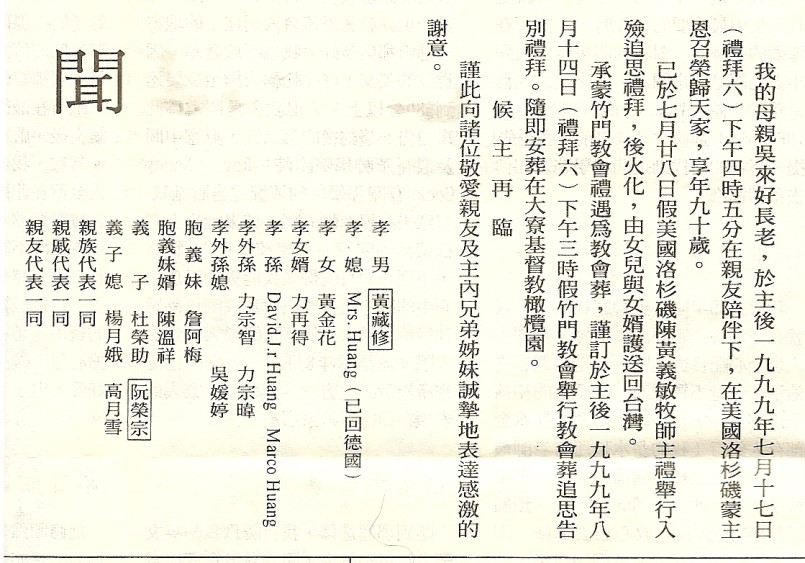 我的母親吳來好長老，於主後一九九九年七月十七日
（禮拜六）下午四時五分在親友陪伴下，在美國洛杉磯蒙主
恩召榮歸天家，享年九十歲。
已於七月廿八日假美國洛杉磯陳黃義敏牧師主禮舉行入
殮追思禮拜，後火化，由女兒與女婿護送回台灣。
承蒙竹門教會禮遇爲教會葬，謹訂於主後一九九九年八
月十四日（禮拜六）下午三時假竹門教會舉行教會葬追思告
別禮拜。隨即安葬在大寮基督教橄欖園。
候主再臨
謹此向諸位敬愛親友及主內兄弟姊妹誠摯地表達感激的
謝意。
孝男 黃藏修
孝媳 Mrs. Huang（已回德國）
孝女 黃金花
孝女婿 力再得
孝孫 David.Jr Huang Marco Huang
孝外孫 力宗智 力宗暐
孝外孫媳 吳媛婷
胞義妹 詹阿梅
胞義妹婿 陳溫祥
義子 杜榮助 阮榮宗
義子媳 楊月娥 高月雪
親族代表一同
親戚代表一同
親友代表一同
聞